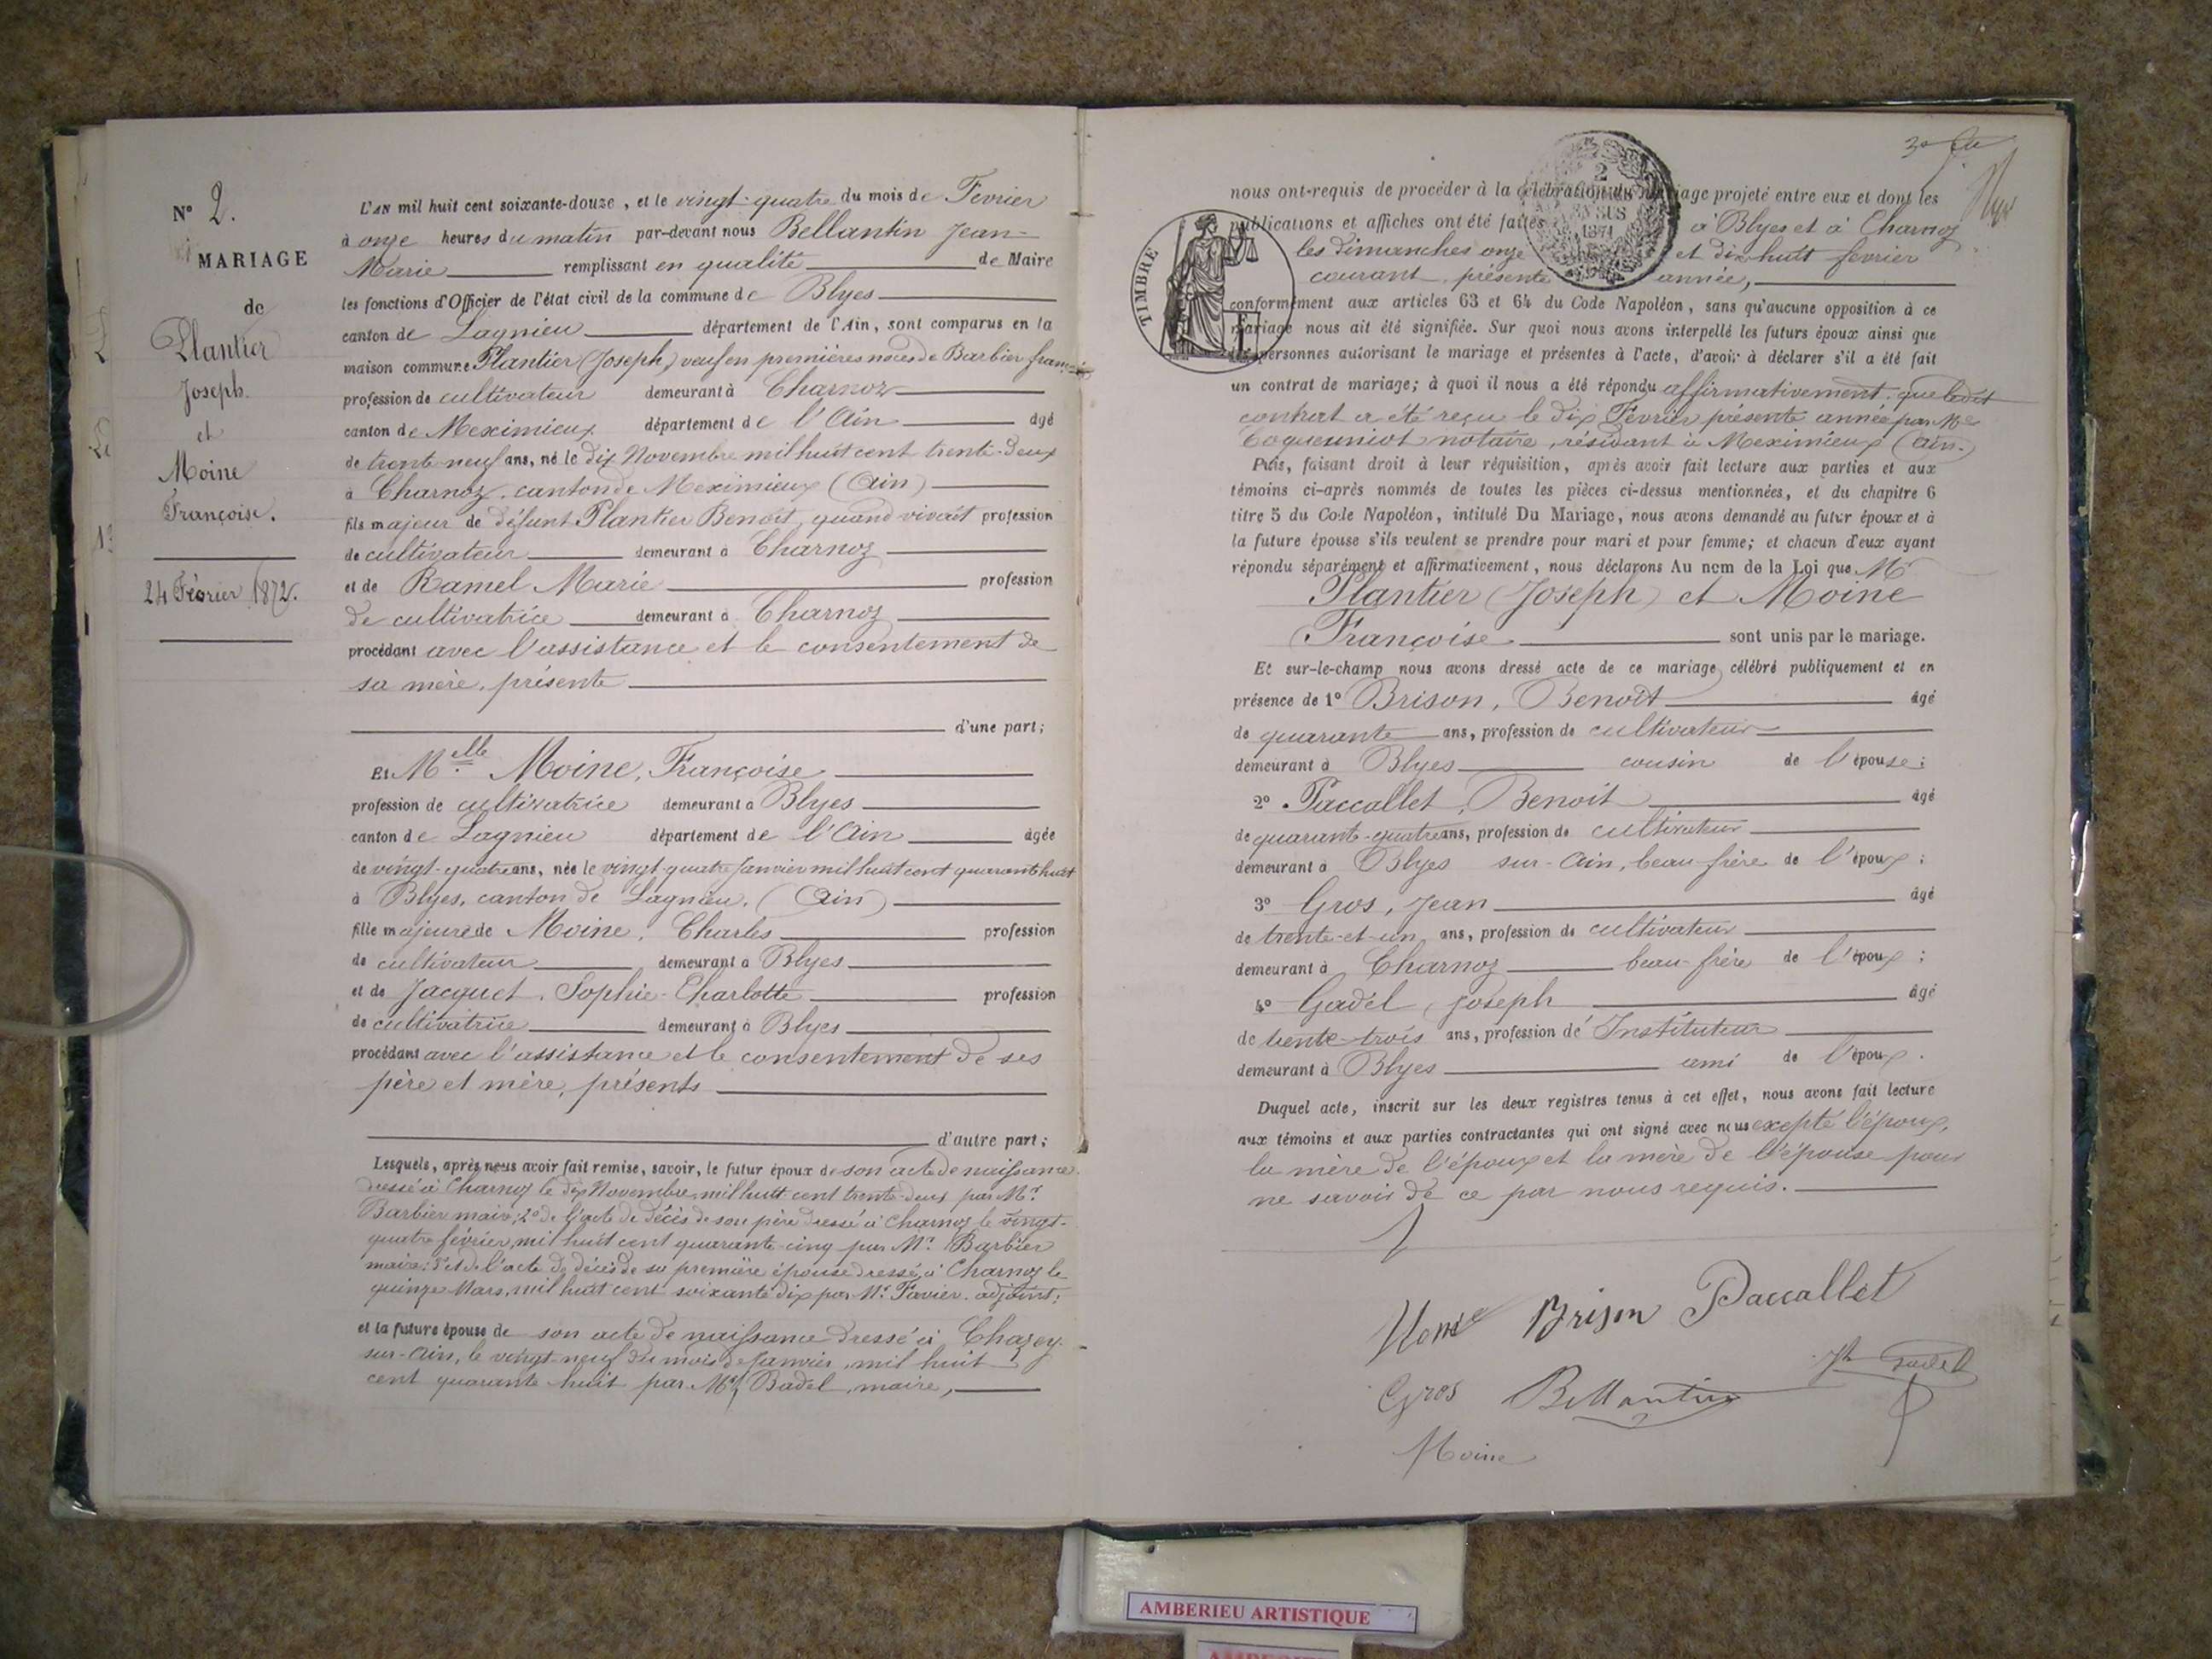 N° 2.
MARIAGE
de
Plantier
Joseph.
et
Moine
Françoise.
24 Février 1872.
L'AN mil huit cent soixante-douze, et le vingt-quatre du mois de Fevrier
à onze heures du matin par-devant nous Bellantin Jean-
Marie remplissant en qualité de Maire
les fonctions d'Officier de l'état civil de la commune de Blyes
canton de Lagnieu département de l'Ain, sont comparus en la
maison commune Plantier (Joseph) veuf en premières noces de Barbier
profession de cultivateur demeurant à Charnoz
canton de Meximieux département de l'Ain âgé
de trente-neuf ans, né le dix Novembre mil huit cent trente-deux
à Charnoz, canton de Meximieux (Ain)
fils majeur de défunt Plantier Benoit, quand vivait profession
de cultivateur demeurant à Charnoz
et de Ramel Marie profession
de cultivatrice demeurant à Charnoz
procédant avec l'assistance et le consentement de
sa mère, présente
d'une part;
Et Melle Moine, Françoise
profession de cultivatrice demeurant à Blyes
canton de Lagnieu département de l'Ain âgée
de vingt-quatre ans, née le vingt-quatre Janvier mil huit cent quarante huit
à Blyes, canton de Lagnieu, (Ain)
fille majeure de Moine, Charles profession
de cultivateur demeurant à Blyes
et de Jacquet, Sophie-Charlotte profession
de cultivatrice demeurant à Blyes
procédant avec l'assistance et le consentement de ses
père et mère, présents
d'autre part;
Lesquels, après nous avoir fait remise, savoir, le futur époux de son acte de naissance
dressé à Charnoz le dix Novembre, mil huit cent trente-deux par Mr.
Barbier maire; 2° de l'acte de décès de son père dressé à Charnoz le vingt-
quatre février, mil huit cent quarante-cinq par Mr. Barbier
maire; 3° et de l'acte de décès de sa première épouse dressé, à Charnoz le
quinze Mars, mil huit cent soixante dix par Mr. Favier. adjoint;
et la future épouse de son acte de naissance dressé à Chazey-
sur-Ain, le vingt-neuf du mois de Janvier, mil huit
cent quarante-huit par Mr. Badel, maire,
nous ont requis de procéder à la célébration du mariage projeté entre eux et dont les
publications et affiches ont été faites à Blyes et à Charnoz
les dimanches onze et dix huit fevrier
courant, présente année,
TIMBRE
2
1871
conformément aux articles 63 et 64 du Code Napoléon, sans qu'aucune opposition à ce
mariage nous ait été signifiée. Sur quoi nous avons interpellé les futurs époux ainsi que
personnes autorisant le mariage et présentes à l'acte, d'avoir à déclarer s'il a été fait
un contrat de mariage; à quoi il nous a été répondu affirmativement. que ledit
contrat a été reçu le dix Février présente année par Me
notaire, résidant à Meximieux (Ain.)
Puis, faisant droit à leur réquisition, après avoir fait lecture aux parties et aux
témoins ci-après nommés de toutes les pièces ci-dessus mentionnées, et du chapitre 6
titre 5 du Code Napoléon, intitulé Du Mariage, nous avons demandé au futur époux et à
la future épouse s'ils veulent se prendre pour mari et pour femme; et chacun d'eux ayant
répondu séparément et affirmativement, nous déclarons Au nom de la Loi que Mr
Plantier (Joseph) et Moine
Françoise sont unis par le mariage.
Et sur-le-champ nous avons dressé acte de ce mariage célébré publiquement et en
présence de 1° Brison, Benoit âgé
de quarante ans, profession de cultivateur
demeurant à Blyes cousin de l'épouse;
2° Paccallet, Benoit âgé
de quarante-quatre ans, profession de cultivateur
demeurant à Blyes sur-Ain, beau-frère de l'époux;
3° Gros, Jean âgé
de trente-et-un ans, profession de cultivateur
demeurant à Charnoz beau-frère de l'époux;
4° Gadel, Joseph âgé
de trente-trois ans, profession de Instituteur
demeurant à Blyes ami de l'époux.
Duquel acte, inscrit sur les deux registres tenus à cet effet, nous avons fait lecture
aux témoins et aux parties contractantes qui ont signé avec nous excepté l'époux,
la mère de l'époux et la mère de l'épouse pour
ne savoir de ce par nous requis.
Brison Paccallet
Gros Bellantin Jh Gadel
Moine
AMBERIEU ARTISTIQUE